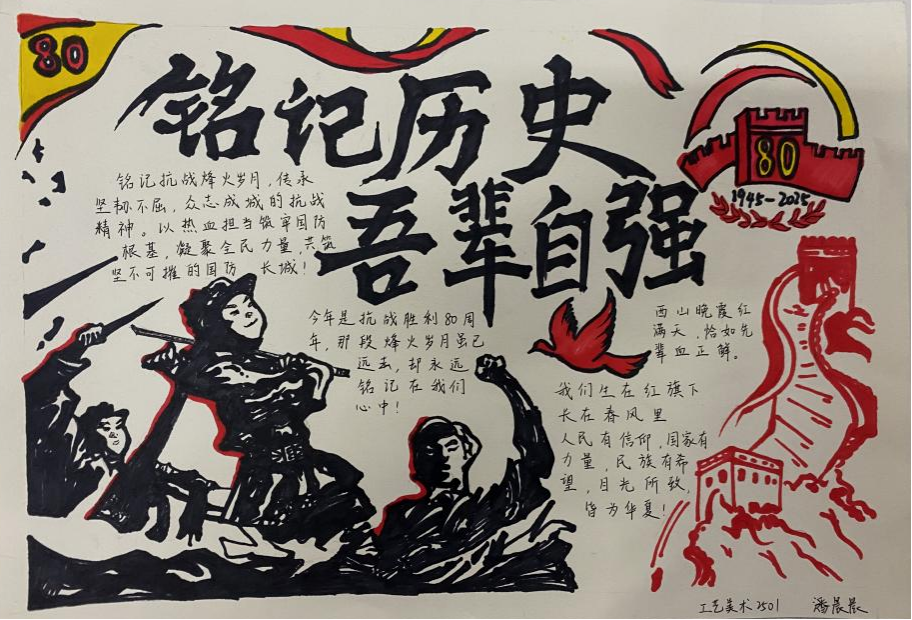 80
铭记历史
吾辈自强
80
1945-2025
铭记抗战烽火岁月，传承
坚韧不屈，众志成城的抗战
精神。以热血担当筑牢国防
根基，凝聚全民力量，共筑
坚不可摧的国防 长城！
今年是抗战胜利80周
年，那段烽火岁月虽已
远去，却永远
铭记在我们
心中！
西山晚霞红
满天，恰如先
辈血正鲜。
我们生在红旗下
长在春风里
人民有信仰，国家有
力量，民族有希
望，目光所致，
皆为华夏！
工艺美术2501 潘晨晨